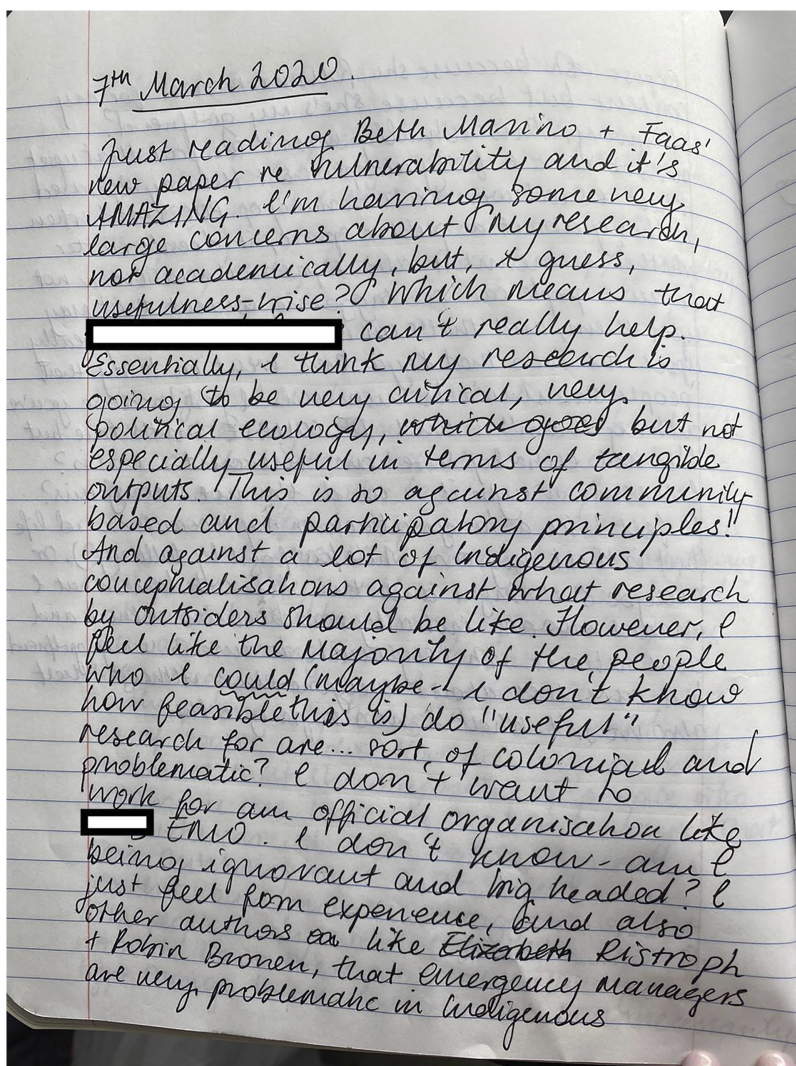 7th March 2020.
Just reading Beth Marino + Faas'
new paper re vulnerability and it's
AMAZING. I'm having some very
large concerns about my research,
not academically, but, I guess,
usefulness-wise? Which means that
can't really help.
Essentially, I think my research is
going to be very critical, very
political ecology, which goes but not
especially useful in terms of tangible
outputs. This is so against community
based and participatory principles!!
And against a lot of Indigenous
conceptualisations against what research
by outsiders should be like. However, I
feel like the majority of the people
who I could (maybe - I don't know
how feasible this is) do "useful"
research for are... sort of colonial and
problematic? I don't want to
work for an official organisation like
EMO. I don't know - am I
being ignorant and big headed? I
just feel from experience, and also
other authors like Elizabeth Ristroph
+ Robin Bronen, that emergency managers
are very problematic in Indigenous